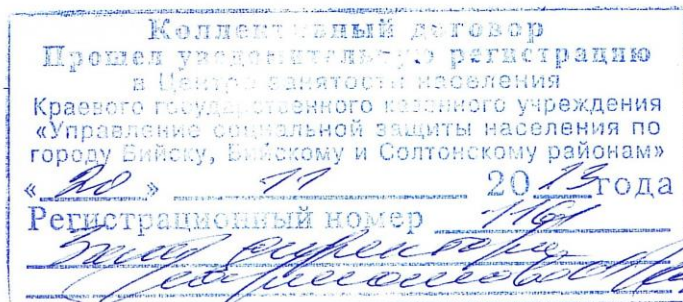 Коллективный договор
Прошел уведомительную регистрацию
в Центре занятости населения
Краевого государственного казенного учреждения
«Управление социальной защиты населения по
городу Бийску, Бийскому и Солтонскому районам»
«20» 11 20 года
Регистрационный номер